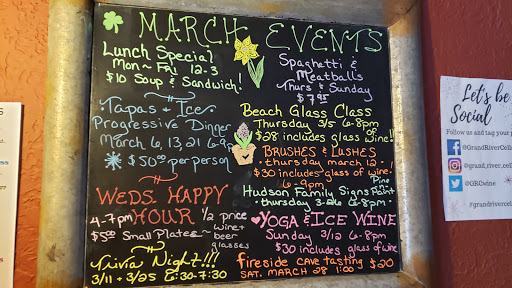 MARCH EVENTS
Lunch Special
Mon ~ Fri 12-3
$10 Soup & Sandwich!
Tapas & Ice
Progressive Dinner
March 6, 13, 21 6-9
$50.00 per person
WEDS. HAPPY
HOUR
4-7pm
1/2 price
wine +
beer
glasses
$5.00 Small Plates ~
Trivia Night!!!
3/11 + 3/25 6:30-7:30
Spaghetti &
Meatballs
Thurs & Sunday
$7.95
Beach Glass Class
Thursday 3/5 6-8pm
$28 includes glass of wine!!
BRUSHES & LUSHES
thursday march 12
$30 includes glass of wine
6-9pm
Hudson Family Signs Pine Paint
thursday 3-26 6-8pm
YOGA & ICE WINE
Sunday 3/12 6-8pm
$30 includes glass of wine
fireside cave tasting $20
SAT. MARCH 28 1:00
Let's be
Social
Follow us and tag your
@GrandRiverCell
@grand_river.cel
@GRCwine
#grandrivercel